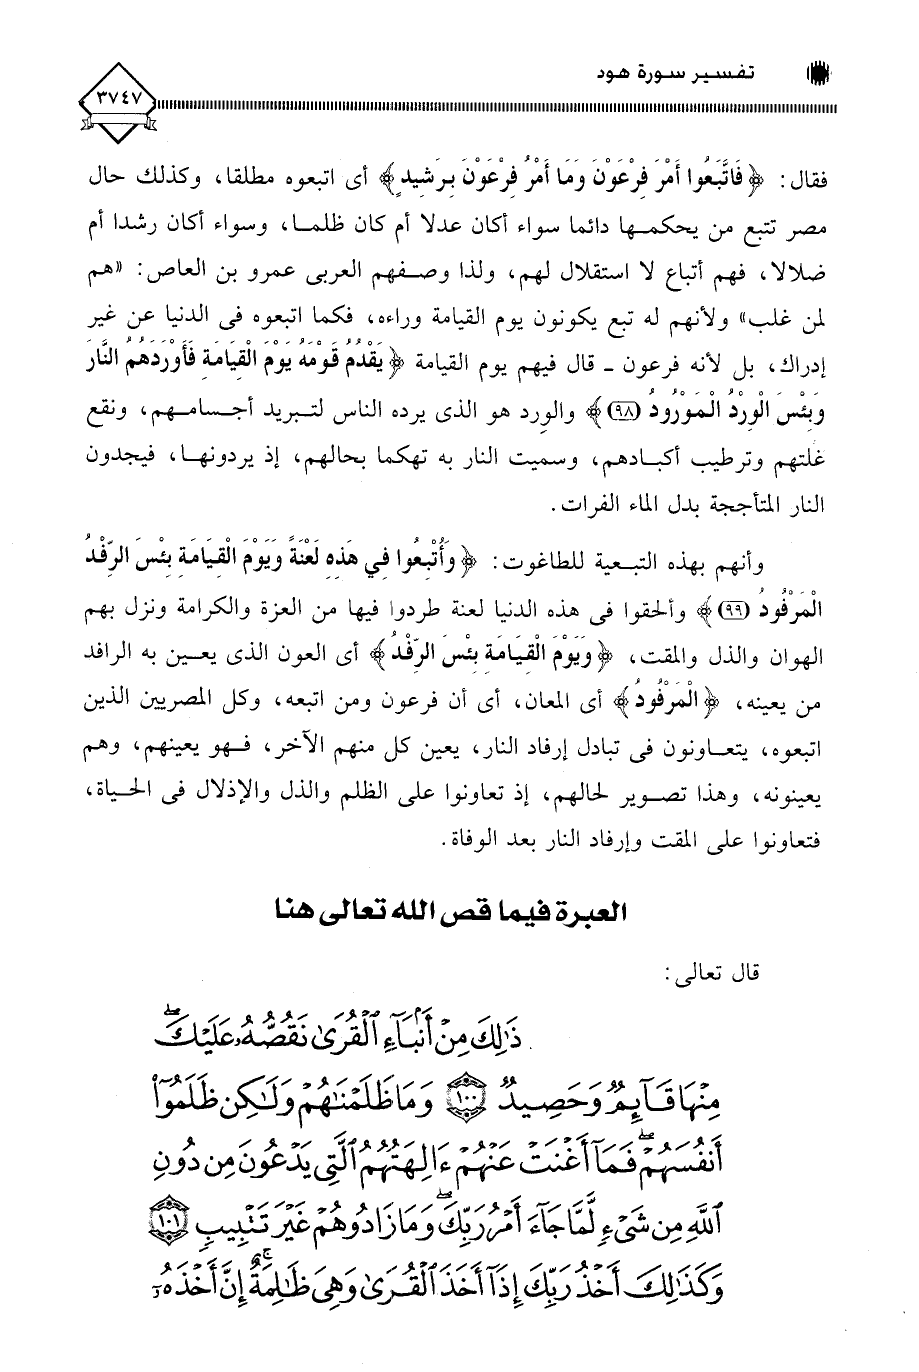 تفسير سورة هود
٣٧٤٧
فقال: ﴿فَاتَّبَعُوا أَمْرَ فِرْعَوْنَ وَمَا أَمْرُ فِرْعَوْنَ بِرَشِيدٍ﴾ أى اتبعوه مطلقا، وكذلك حال
مصر تتبع من يحكمها دائما سواء أكان عدلا أم كان ظلما، وسواء أكان رشدا أم
ضلالا، فهم أتباع لا استقلال لهم، ولذا وصفهم العربى عمرو بن العاص: «هم
لمن غلب» ولأنهم له تبع يكونون يوم القيامة وراءه، فكما اتبعوه فى الدنيا عن غير
إدراك، بل لأنه فرعون ـ قال فيهم يوم القيامة ﴿يَقْدُمُ قَوْمَهُ يَوْمَ الْقِيَامَةِ فَأَوْرَدَهُمُ النَّارَ
وَبِئْسَ الْوِرْدُ الْمَوْرُودُ (٩٨)﴾ والورد هو الذى يرده الناس لتبريد أجسامهم، ونقع
غلتهم وترطيب أكبادهم، وسميت النار به تهكما بحالهم، إذ يردونها، فيجدون
النار المتأججة بدل الماء الفرات.
وأنهم بهذه التبعية للطاغوت: ﴿وَأُتْبِعُوا فِي هَذِهِ لَعْنَةً وَيَوْمَ الْقِيَامَةِ بِئْسَ الرِّفْدُ
الْمَرْفُودُ (٩٩)﴾ وألحقوا فى هذه الدنيا لعنة طردوا فيها من العزة والكرامة ونزل بهم
الهوان والذل والمقت، ﴿وَيَوْمَ الْقِيَامَةِ بِئْسَ الرِّفْدُ﴾ أى العون الذى يعين به الرافد
من يعينه، ﴿الْمَرْفُودُ﴾ أى المعان، أى أن فرعون ومن اتبعه، وكل المصريين الذين
اتبعوه، يتعاونون فى تبادل إرفاد النار، يعين كل منهم الآخر، فهو يعينهم، وهم
يعينونه، وهذا تصوير لحالهم، إذ تعاونوا على الظلم والذل والإذلال فى الحياة،
فتعاونوا على المقت وإرفاد النار بعد الوفاة.
العبرة فيما قص الله تعالى هنا
قال تعالى:
ذَٰلِكَ مِنْ أَنۢبَآءِ ٱلْقُرَىٰ نَقُصُّهُۥ عَلَيْكَ ۖ
مِنْهَا قَآئِمٌ وَحَصِيدٌ ١٠٠ وَمَا ظَلَمْنَٰهُمْ وَلَٰكِن ظَلَمُوٓا۟
أَنفُسَهُمْ ۖ فَمَآ أَغْنَتْ عَنْهُمْ ءَالِهَتُهُمُ ٱلَّتِى يَدْعُونَ مِن دُونِ
ٱللَّهِ مِن شَىْءٍ لَّمَّا جَآءَ أَمْرُ رَبِّكَ ۖ وَمَا زَادُوهُمْ غَيْرَ تَتْبِيبٍ ١٠١
وَكَذَٰلِكَ أَخْذُ رَبِّكَ إِذَآ أَخَذَ ٱلْقُرَىٰ وَهِىَ ظَٰلِمَةٌ ۚ إِنَّ أَخْذَهُۥٓ